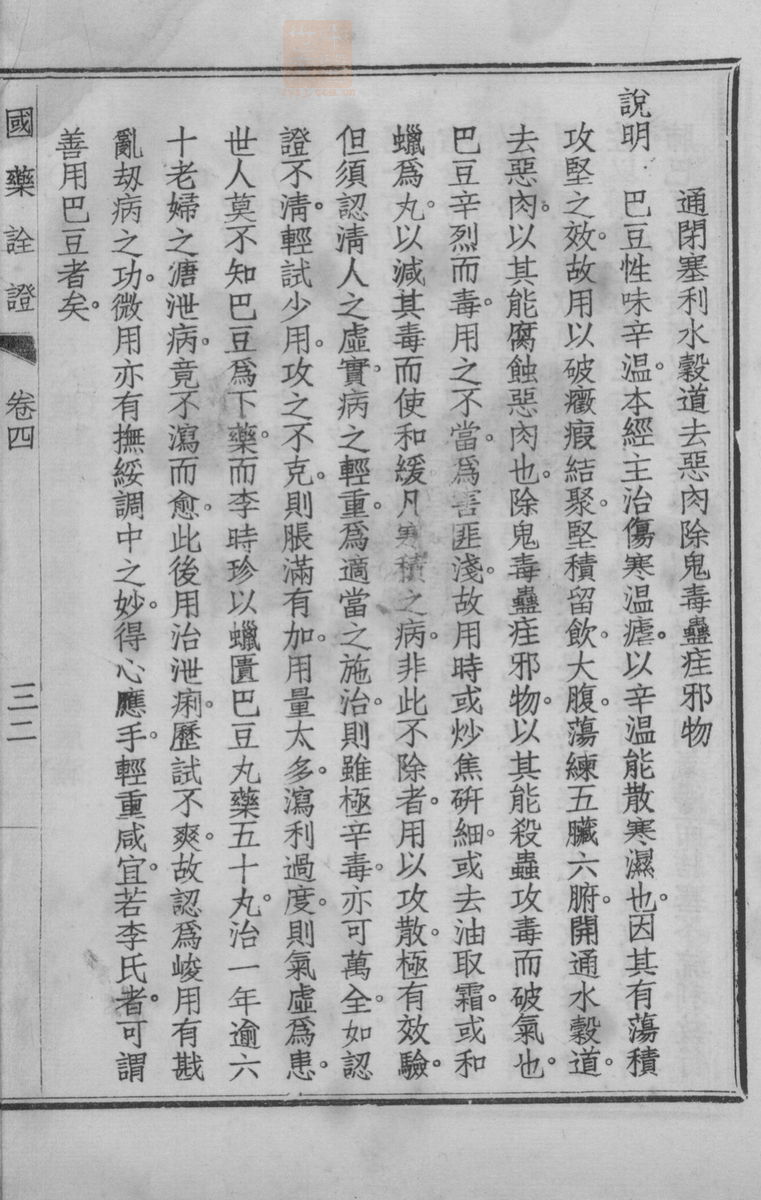 通閉塞利水穀道去惡肉除鬼毒蠱疰邪物
說明　巴豆性味辛温。本經主治傷寒温瘧。以辛温能散寒濕也。因其有蕩積
攻堅之效。故用以破癥瘕結聚。堅積留飲。大腹。蕩練五臟六腑。開通水穀道。
去惡肉。以其能腐蝕惡肉也。除鬼毒蠱疰邪物。以其能殺蟲攻毒而破氣也。
巴豆辛烈而毒。用之不當。爲害匪淺。故用時或炒焦研細。或去油取霜。或和
蠟爲丸。以減其毒而使和緩。凡寒積之病。非此不除者。用以攻散。極有效驗。
但須認清人之虛實。病之輕重。爲適當之施治。則雖極辛毒。亦可萬全。如認
證不清。輕試少用。攻之不克。則脹滿有加。用量太多。瀉利過度。則氣虛爲患。
世人莫不知巴豆爲下藥。而李時珍以蠟匱巴豆丸藥五十丸。治一年逾六
十老婦之溏泄病。竟不瀉而愈。此後用治泄痢。歷試不爽。故認爲峻用有戡
亂刧病之功。微用亦有撫綏調中之妙。得心應手。輕重咸宜。若李氏者。可謂
善用巴豆者矣。
國藥詮證
卷四
三二